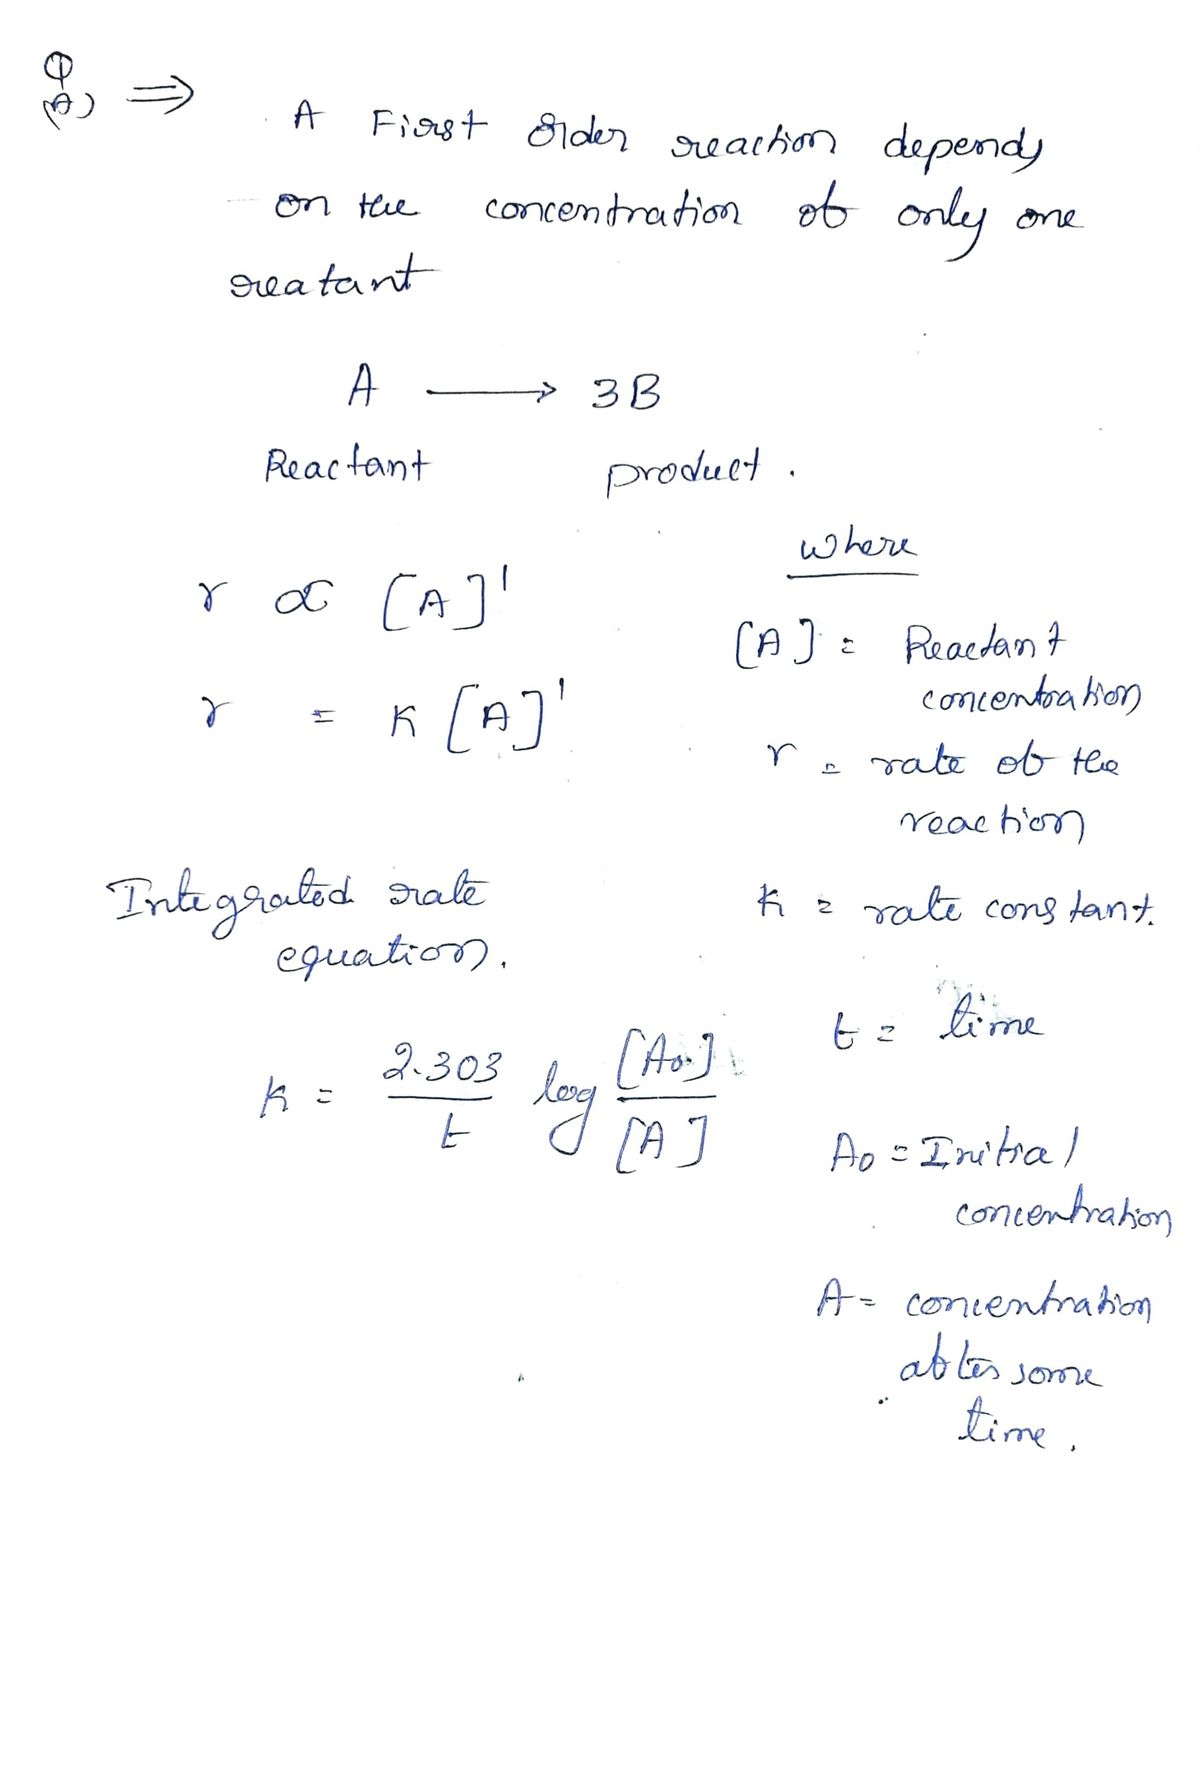 Q
(A) ⇒
A First Order reaction depends
on the concentration of only one
reatant
A ⟶ 3B
Reactant product.
r ∝ [A]¹
r = K [A]¹
Integrated rate
equation.
K = 2.303/t log [A₀]/[A]
where
[A] = Reactant
concentration
r = rate of the
reaction
K = rate constant.
t = time
A₀ = Initial
concentration
A = concentration
after some
time.